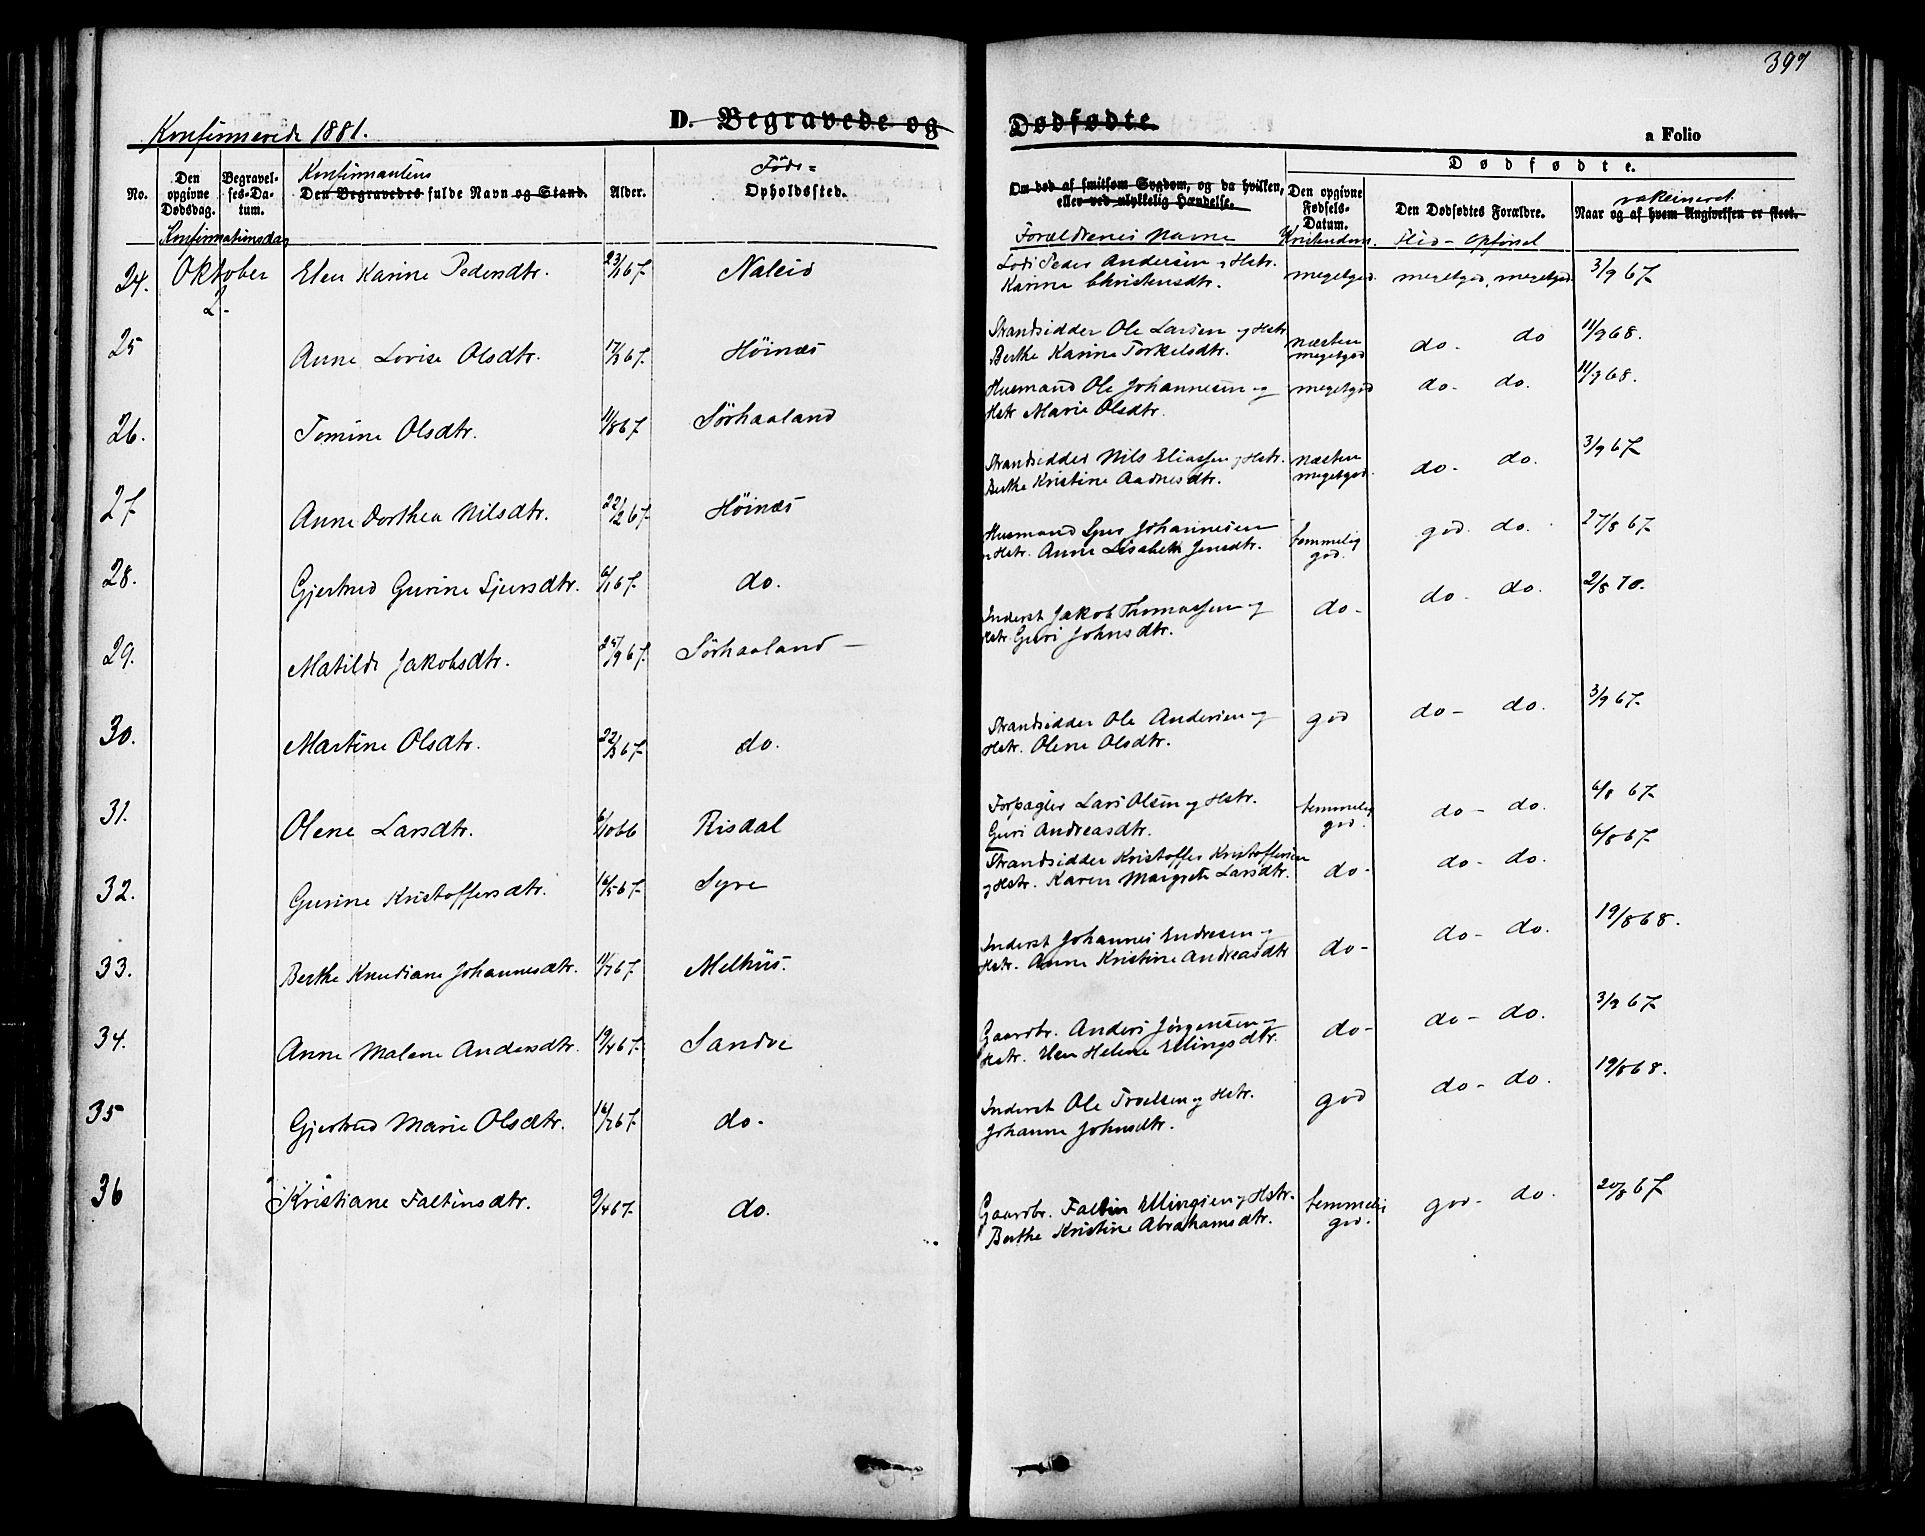 397
Konfirmerede 1881.
D. Begravede og Dødfødte.
a Folio
No.
Den opgivne Dødsdag.
Begravelses-Datum.
Konfirmationsdag
Konfirmantens
Den Begravedes fulde Navn og Stand.
Alder.
Føde-
Opholdssted.
Om død af smitsom Sygdom, og da hvilken,
eller ved ulykkelig Hændelse.
Forældrenes Navne
Dødfødte.
Den opgivne Fødsels-Datum.
Kristendom.
Den Dødfødtes Forældre.
Flid - Opførsel
vakcineret
Naar og af hvem Angivelsen er skeet.
24. Oktober 2. Elen Karine Pedersdtr. 23/1 67. Naleid Lods Peder Andersen og Hstr. megetgod megetgod, megetgod 3/9 67.
Karine Christensdtr.
25 Anne Lovise Olsdtr. 17/7 67. Höinæs Strandsidder Ole Larsen og Hstr. næsten do. do 11/9 68.
Berthe Karine Torkelsdtr. megetgod
26. Tomine Olsdtr. 11/8 67. Sörhaaland Husmand Ole Johannesen og megetgod do- do. 11/9 68.
Hstr Marie Olsdtr.
27 Anne Dorthea Nilsdtr. 22/12 67. Höinæs Strandsidder Nils Eliassen og Hstr. næsten do- do. 3/9 67.
Berthe Kristine Aadnesdtr. megetgod.
28. Gjertrud Gurine Sjursdtr. 6/1 67. do. Husmand Sjur Johannesen temmelig god. do. 27/8 67.
og Hstr. Anne Lisabeth Jensdtr. god.
29. Matilde Jakobsdtr. 25/9 67. Sörhaaland - Inderst Jakob Thomassen og do- do. do. 2/8 70.
Hstr Guri Johnsdtr.
30. Martine Olsdtr. 22/3 67. do. Strandsidder Ole Andersen og god do- do. 3/9 67.
Hstr. Olene Olsdtr.
31. Olene Larsdtr. 6/10 66 Risdal Forpagter Lars Olsen og Hstr. temmelig do- do. 6/8 67.
Guri Andreasdtr. god.
32. Gurine Kristoffersdtr. 16/5 67. Syre Strandsidder Kristoffer Kristoffersen do- do- do. 6/8 67.
og Hstr. Karen Margrete Larsdtr.
33. Berthe Knudiane Johannesdtr. 11/7 67. Melhus. Inderst Johannes Endresen og do- do- do. 19/8 68.
Hstr. Anne Kristine Andreasdtr
34. Anne Malene Andersdtr. 19/4 67. Sandve Gaardbr. Anders Jørgensen og do- do- do. 3/9 67.
Hstr. Elen Helene Ellingsdtr.
35 Gjertrud Marie Olsdtr. 16/7 67. do. Inderst Ole Troelsen og Hstr. god do- do. 19/8 68.
Johanne Johnsdtr.
36 Kristiane Faltinsdtr. 9/4 67. do. Gaardbr. Faltin Ellingsen og Hstr. temmelig god- do. 20/8 67.
Berthe Kristine Abrahamsdtr. god.